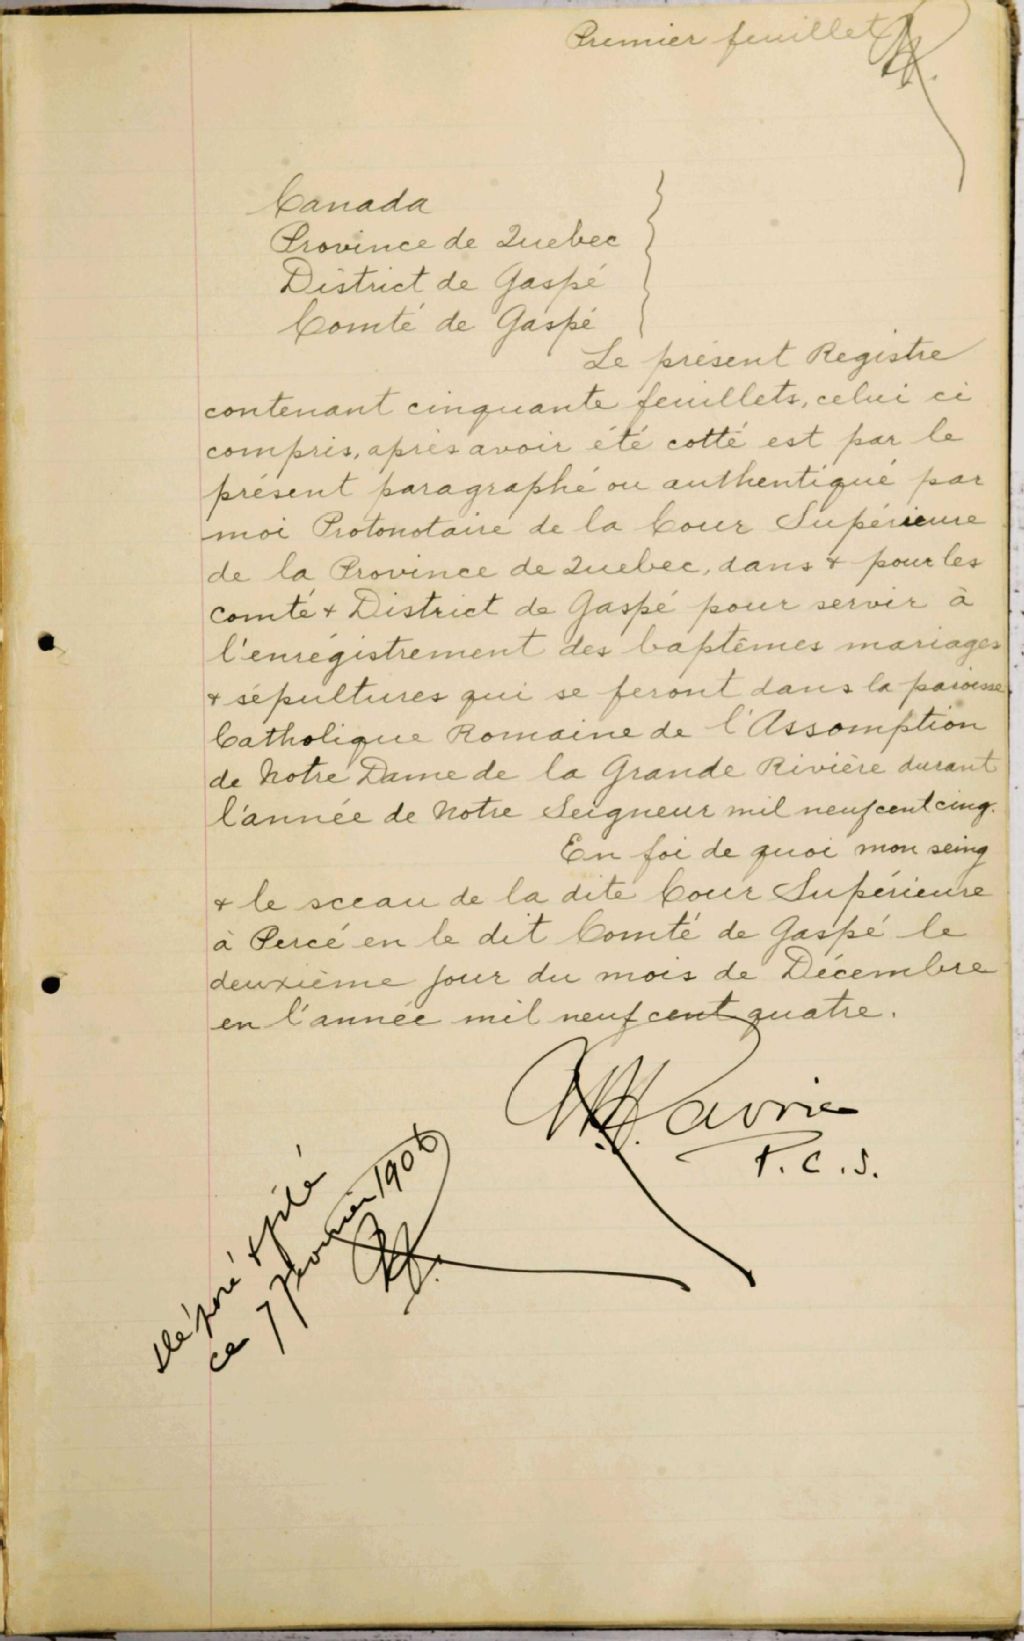 Premier feuillet
Canada
Province de Quebec
District de Gaspé
Comté de Gaspé
Le présent Registre
contenant cinquante feuillets, celui ci
compris, après avoir été cotté est par le
présent paragraphé ou authentiqué par
moi Protonotaire de la Cour Supérieure
de la Province de Quebec, dans & pour les
comté & District de Gaspé pour servir à
l'enrégistrement des baptêmes mariages
& sépultures qui se feront dans la paroisse
Catholique Romaine de l'Assomption
de Notre Dame de la Grande Rivière durant
l'année de Notre Seigneur mil neuf cent cinq.
En foi de quoi mon seing
& le sceau de la dite Cour Supérieure
à Percé en le dit Comté de Gaspé le
deuxième jour du mois de Décembre
en l'année mil neuf cent quatre.
P.C.S.
Déposé & filé
ce 7 février 1906